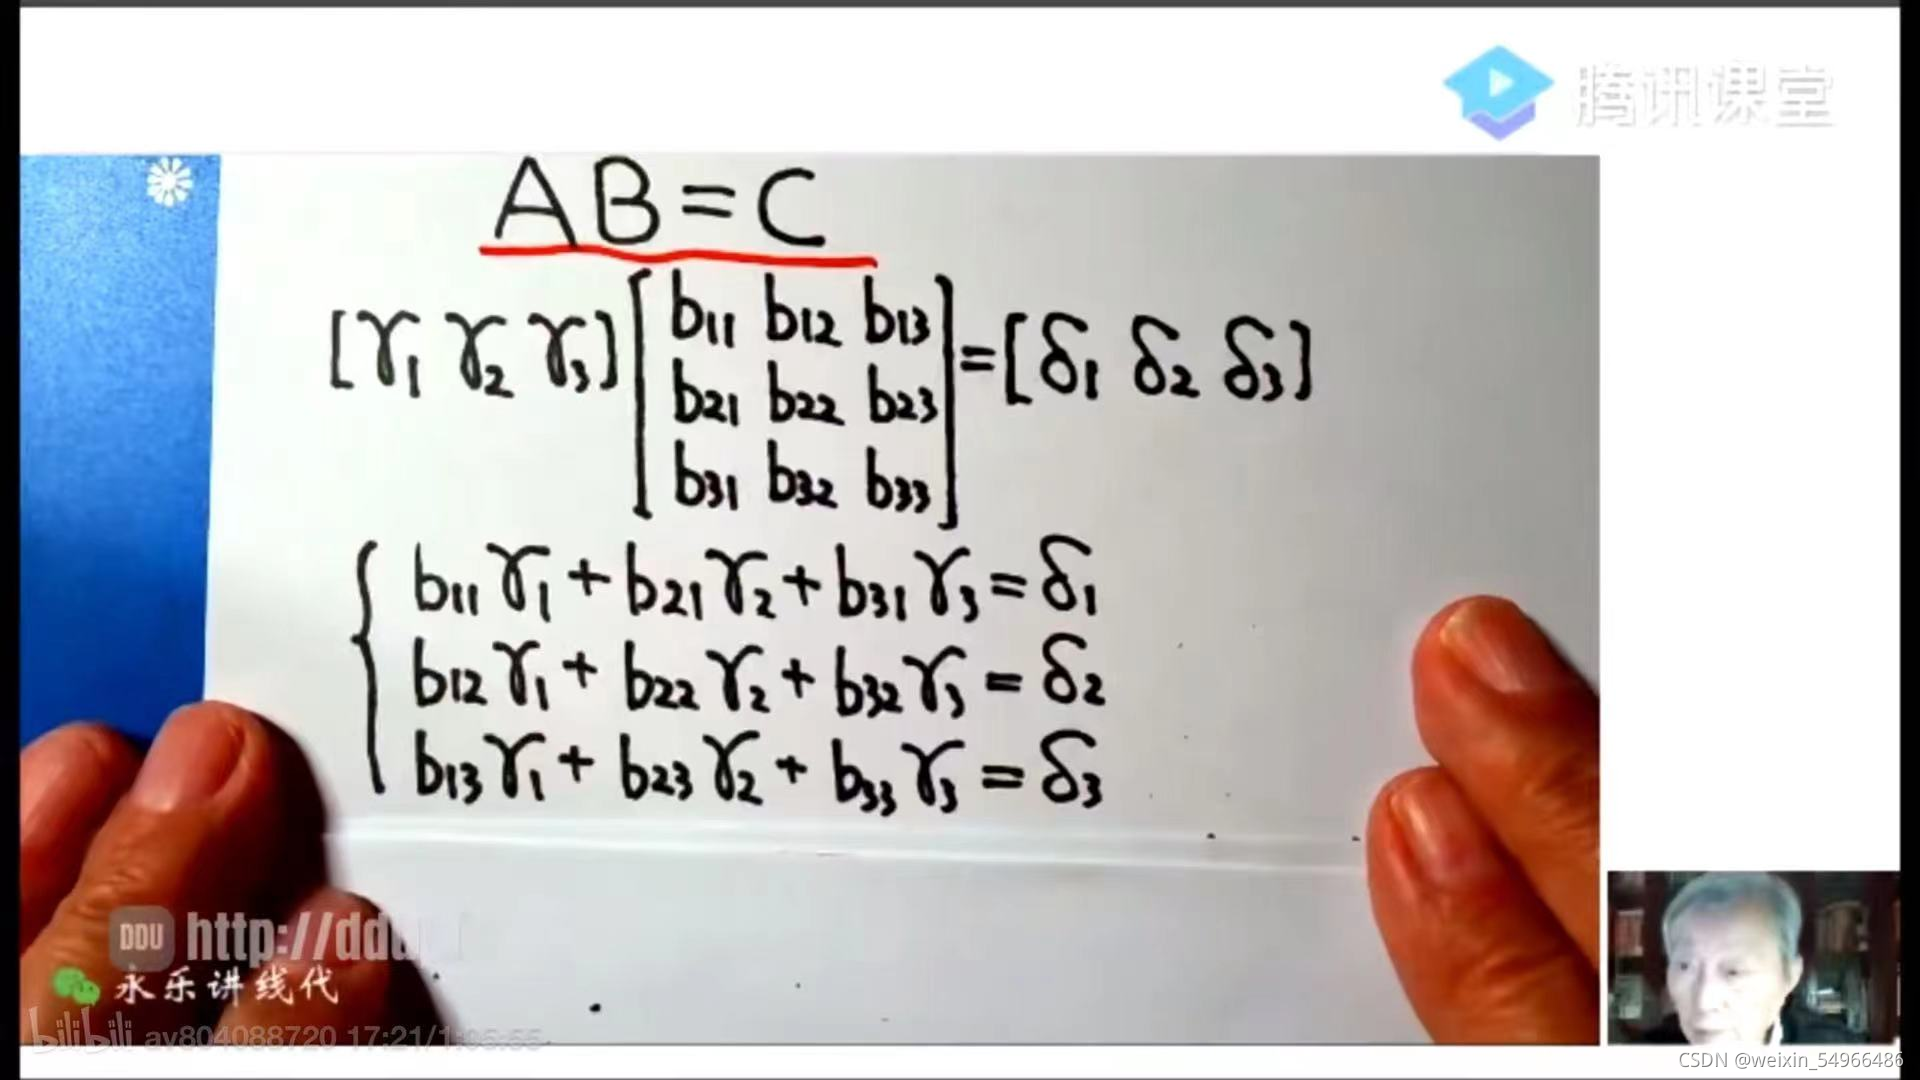 腾讯课堂
AB=C
[γ1 γ2 γ3][b11 b12 b13
b21 b22 b23
b31 b32 b33]=[δ1 δ2 δ3]
{b11γ1+b21γ2+b31γ3=δ1
b12γ1+b22γ2+b32γ3=δ2
b13γ1+b23γ2+b33γ3=δ3
DDU http://ddu
永乐讲线代
bilibili av804088720 17:21/1:05:55
CSDN @weixin_54966486